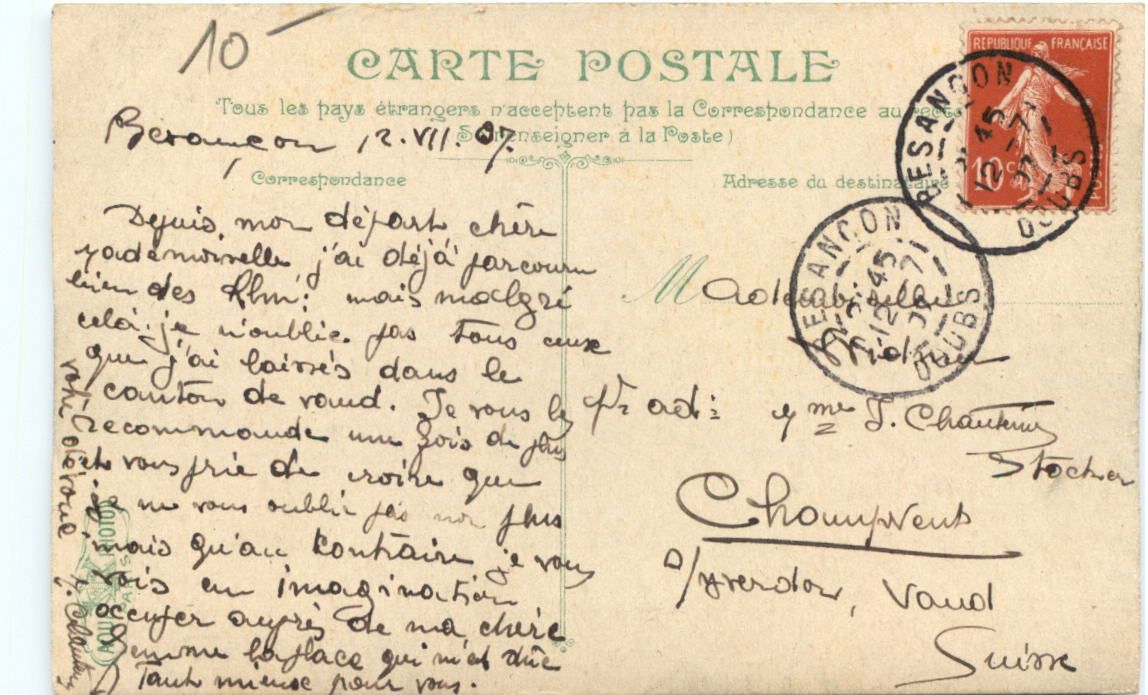 10
CARTE POSTALE
Tous les pays étrangers n'acceptent pas la Correspondance au recto
(Se renseigner à la Poste)
Besançon 12. VII. 07.
Correspondance
Depuis mon départ chère
Mademoiselle, j'ai déjà parcouru
bien des Klm: mais malgré
celà je n'oublie pas tous ceux
que j'ai laissés dans le
canton de vaud. Je vous les
recommande une fois de plus
et vous prie de croire que
je ne vous oublie pas non plus
mais qu'au contraire je vous
vois en imagination
occuper auprès de ma chère
femme la place qui m'est dûe
Tant mieux pour vous.
votre dévoué
Adresse du destinataire
Mademoiselle
pr ad: Mme J.
Stocker
Champvent
s/yverdon, Vaud
Suisse
REPUBLIQUE FRANÇAISE
10 c
BESANÇON
45
12 - 7
07
DOUBS
BESANÇON
45
12 - 7
07
DOUBS
PHOTO
PARIS